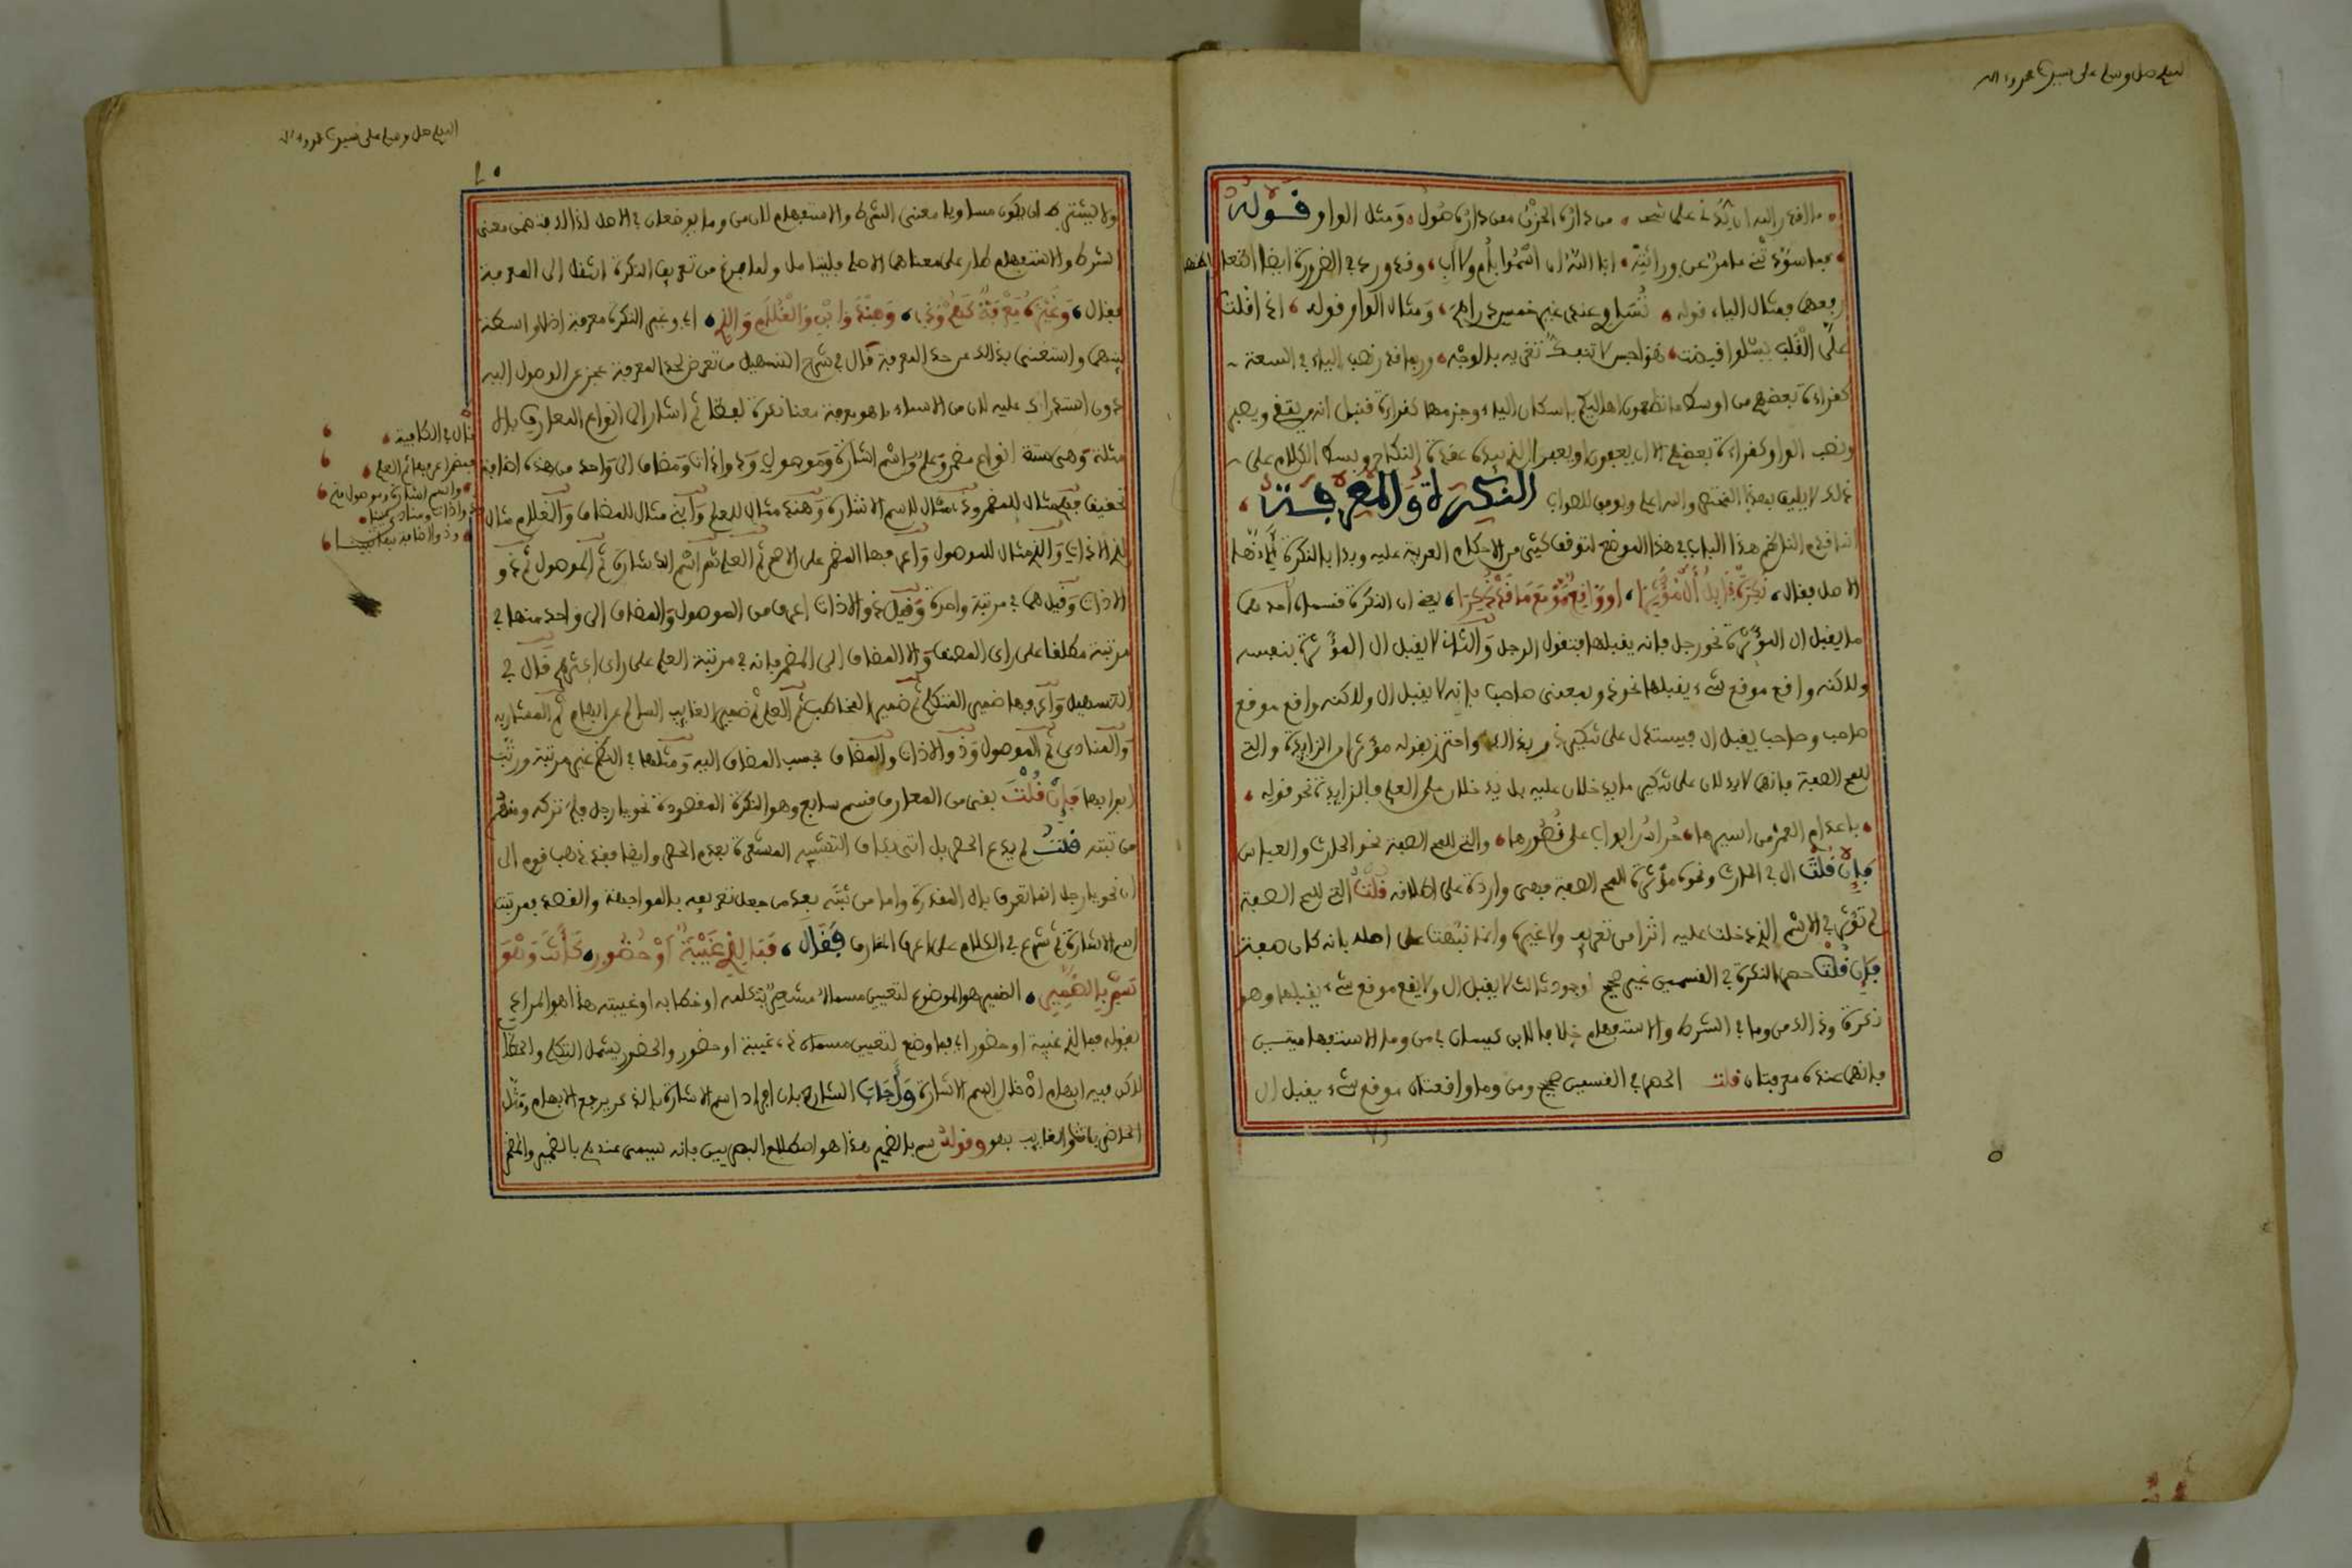 اللهم صل وسلم على سيدنا محمد وءاله
ما اقدر الله ان يدني على شحط من داره الحزن ممن داره صول ومثل الواو قوله
فما سودتني عامر عن وراثة ابى الله ان اسموا بام ولا اب وقد ورد في الضرورة ايضا
رفعهما فمثال الياء قوله تساوي عندي غير خمس دراهم ومثال الواو قوله اذا قلت
عل القلب يسلوا قيضت هواجس لا تنفك تغريه بالوجد وربما قدر نصب الياء في السعة
كقراءة بعضهم من اوسط ما تطعمون اهاليكم باسكان الياء
ونصب الواو كقراءة بعضهم الا ان يعفون او يعفو الذي بيده عقدة النكاح وبسط الكلام على
ذلك لا يليق بهذا المختصر والله اعلم وهو الموفق للصواب النكرة والمعرفة
انما قدم الناظم هذا الباب في هذا الموضع لتوقف كثير من الاحكام العربية عليه وبدا بالنكرة لانها
الاصل فقال نكرة قابل ال مؤثرا او واقع موقع ما قد ذكرا يعني ان النكرة قسمان احدهما
ما يقبل ال المؤثرة نحو رجل فانه يقبلها فتقول الرجل والثاني لا يقبل ال المؤثرة بنفسه
ولاكنه واقع موقع شيء يقبلها نحو ذو بمعنى صاحب فانه لا يقبل ال ولاكنه واقع موقع
صاحب وصاحب يقبل ال فيستدل على تنكير ذو بذلك واحترز بقوله مؤثرا من الزايدة والتي
للمح الصفة فانهما لا يدلان على تنكير ما يدخلان عليه بل يدخلان على العلم فالزايدة نحو قوله
باعد ام العمر من اسيرها حراس ابواب على قصورها والتي للمح الصفة نحو الحارث والعباس
فان قلت ال في الحارث ونحوه مؤثرة للمح الصفة فهي واردة على اطلاقه قلت التي للمح الصفة
لم تؤثر في الاسم الذي دخلت عليه اثرا من تعريف ولا غيره وانما نبهت على اصله بانه كان صفة
فان قلت حصر النكرة في القسمين غير صحيح لوجود ثالث لا يقبل ال ولا يقع موقع شيء يقبلها وهو
نكرة وذالك من وما في الشرط والاستفهام خلافا لابن كيسان في من وما الاستفهاميتين
فانهما عنده معرفتان قلت الحصر في القسمين صحيح ومن وما واقعتان موقع شيء يقبل ال
اللهم صل وسلم على سيدنا محمد وءاله
ولا يشترط ان يكون مساويا معنى الشرط والاستفهام لان من وما لم يوضعان في الاصل لذالك فتضمن معنى
الشرط والاستفهام طار على معناهما الاصلي فليتامل ولما فرغ من تعريف النكرة انتقل الى المعرفة
فقال وغيره معرفة كهم وذي وهند وابني والغلام والذي اي وغير النكرة معرفة اذ لا واسطة
بينهما واستغنى بذالك عن حد المعرفة قال في شرح التسهيل من تعرض لحد المعرفة عجز عن الوصول اليه
دون استدراك عليه لان من الاسماء ما هو معرفة معنا نكرة لفظا ثم اشار الى انواع المعارف بالا
مثلة وهي ستة انواع مضمر وعلم واسم اشارة وموصول وذو اداة ومضاف الى واحد من هذه اضافة
تحقيق فهم مثال للمضمر وذي مثال لاسم الاشارة وهند مثال للعلم وابني مثال للمضاف والغلام مثال
لذي الاداة والذي مثال للموصول واعرفها المضمر على الاصح ثم العلم ثم اسم الاشارة ثم الموصول ثم ذو
الاداة وقيل هما في مرتبة واحدة وقيل ذو الاداة اعرف من الموصول والمضاف الى واحد منها في
مرتبته مطلقا على راي المصنف والا المضاف الى المضمر فانه في مرتبة العلم على راي اكثرهم قال في
التسهيل واعرفها ضمير المتكلم ثم ضمير المخاطب ثم العلم ثم ضمير الغايب السالم عن ابهام ثم المشار به
والمنادى ثم الموصول وذو الاداة والمضاف بحسب المضاف اليه
فان قلت بقي من المعارف قسم سابع وهو النكرة المقصودة نحو يا رجل فلم تركه
قلت لم يدع الحصر بل اتى بكاف التشبيه المشعرة بعدم الحصر وايضا فقد ذهب قوم الى
ان نحو يا رجل انما تعرف بال المقدرة واما من ثبته بعضهم جعل تعريفه بالمواجهة والقصد فمرتبته
اسم الاشارة ثم شرع في الكلام على اعرف المعارف فقال فما لذي غيبة او حضور كانت وهو
سم بالضمير الضمير هو الموضوع لتعيين مسماه مشعرا بتكلمه او خطابه او غيبته هذا هو المراد
بقوله فما لذي غيبة او حضور اي فما وضع لتعيين مسماه ذي غيبة او حضور والحضور يشمل التكلم والخطاب
لاكن فيه ابهام ادخال اسم الاشارة واجاب الشارح بان افراد اسم الاشارة بالذكر يرفع الابهام ومثل
الحاضر بانت والغايب بهو وقوله سم بالضمير هذا هو اصطلاح البصريين فانه يسمى عندهم بالضمير والمضمر
قال في الكافية
فمضمر اعرفها ثم العلم
واسم اشارة وموصول متم
وذو اداة ومنادى عينا
وذو الاضافة بها تبينا